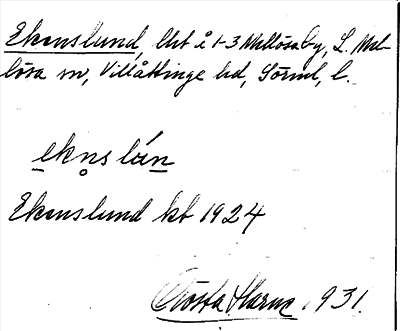 Ekenslund, lht å 1-3 Mellösaby, L. Mel-
lösa sn, Villåttinge hd, Sörml, l.
eknslán
Ekenslund kb 1924
Gösta 1931.